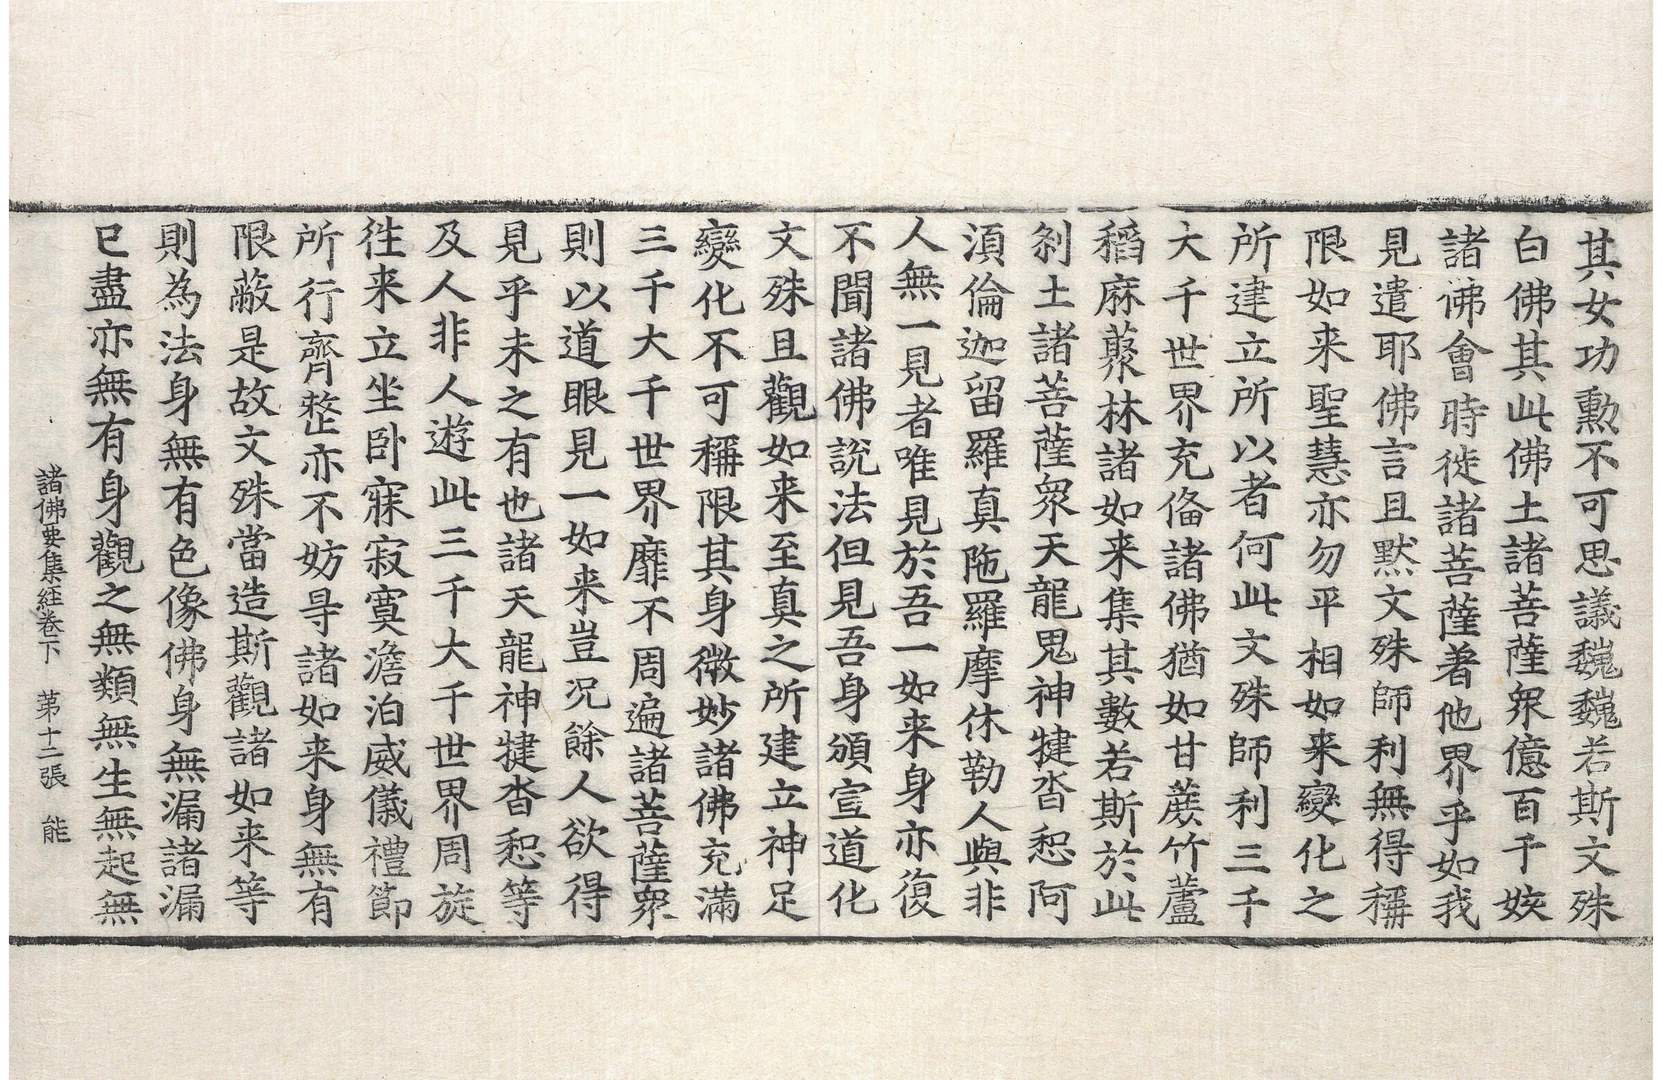 其女功勲不可思議魏魏若斯文殊
白佛其此佛土諸菩薩衆億百千姟
諸佛會時徙諸菩薩著他界乎如我
見遣耶佛言且黙文殊師利無得稱
限如来聖慧亦勿平相如来變化之
所建立所以者何此文殊師利三千
大千世界充俻諸佛猶如甘蔗竹蘆
稻麻藂林諸如来集其數若斯於此
刹土諸菩薩衆天龍鬼神揵沓惒阿
湏倫迦留羅真陁羅摩休勒人與非
人無一見者唯見於吾一如来身亦復
不聞諸佛說法但見吾身頒宣道化
文殊且觀如来至真之所建立神足
變化不可稱限其身微妙諸佛充滿
三千大千世界靡不周遍諸菩薩衆
則以道眼見一如来豈况餘人欲得
見乎未之有也諸天龍神揵沓惒等
及人非人遊此三千大千世界周旋
徃来立坐卧寐寂寞澹泊威儀禮節
所行齊整亦不妨㝵諸如来身無有
限蔽是故文殊當造斯觀諸如来等
則為法身無有色像佛身無漏諸漏
已盡亦無有身觀之無類無生無起無
諸佛要集経卷下　第十二張　能